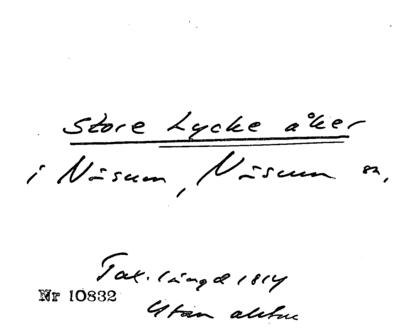 Store Lycke åker
i Näsum, Näsum sn,
Tax.längd 1814
Nr 10832
Utan aktnr